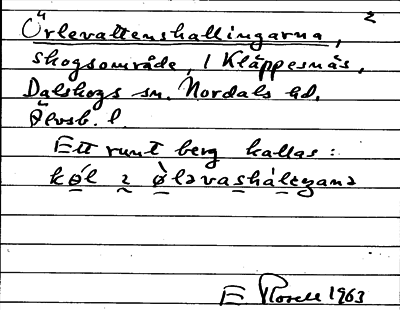 2
Örlevattenshallingarna,
skogsområde, i Kläppesnäs,
Dalskogs sn. Nordals hd.
Älvsb. l.
Ett runt berg kallas:
E Rosell 1963